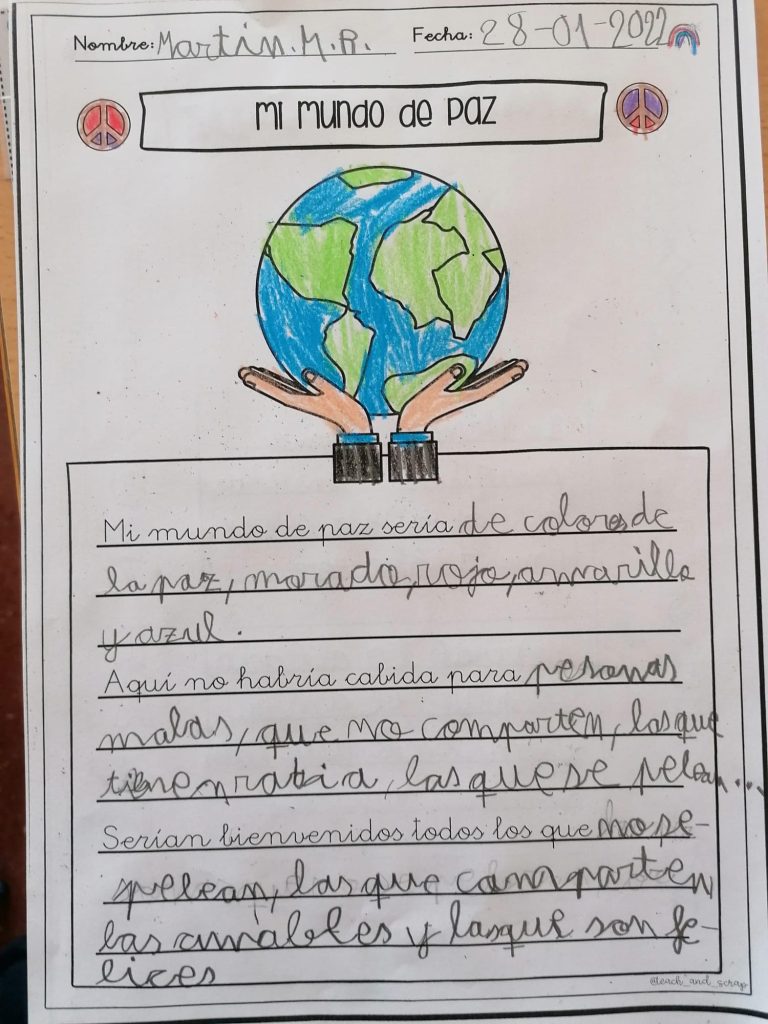 Nombre: Martín.M.R. Fecha: 28-01-2022
Mi mundo de paz
Mi mundo de paz sería de colores de
la paz, morado, rojo, amarillo
y azul.
Aquí no habría cabida para pesonas
malas, que no comparten, las que
tienen rabia, las que se pelean...
Serían bienvenidos todos los que no se-
pelean, las que comparten
las amables y las que son fe-
lices
@teach_and_scrap